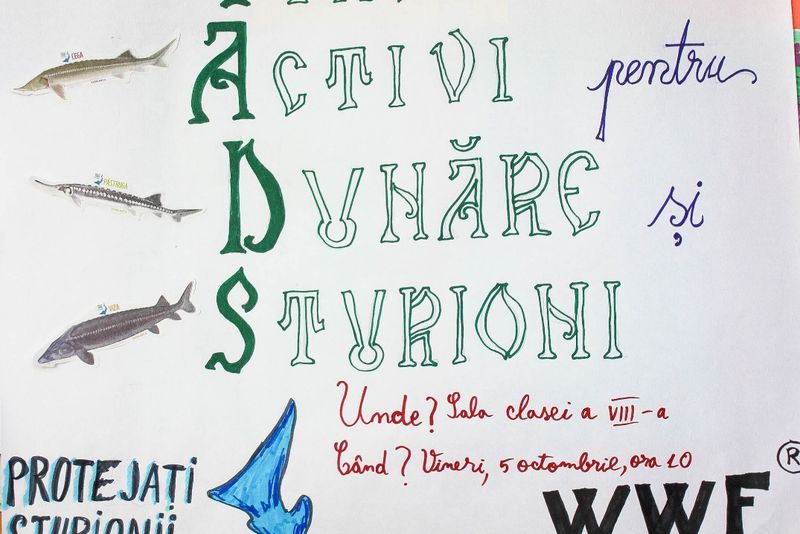 CEGA
ACTIVI pentru
PĂSTRUGA
DUNĂRE și
VIZA
STURIONI
Unde? Sala clasei a VIII-a
Când? Vineri, 5 octombrie, ora 10
PROTEJAȚI
STURIONII
WWF®